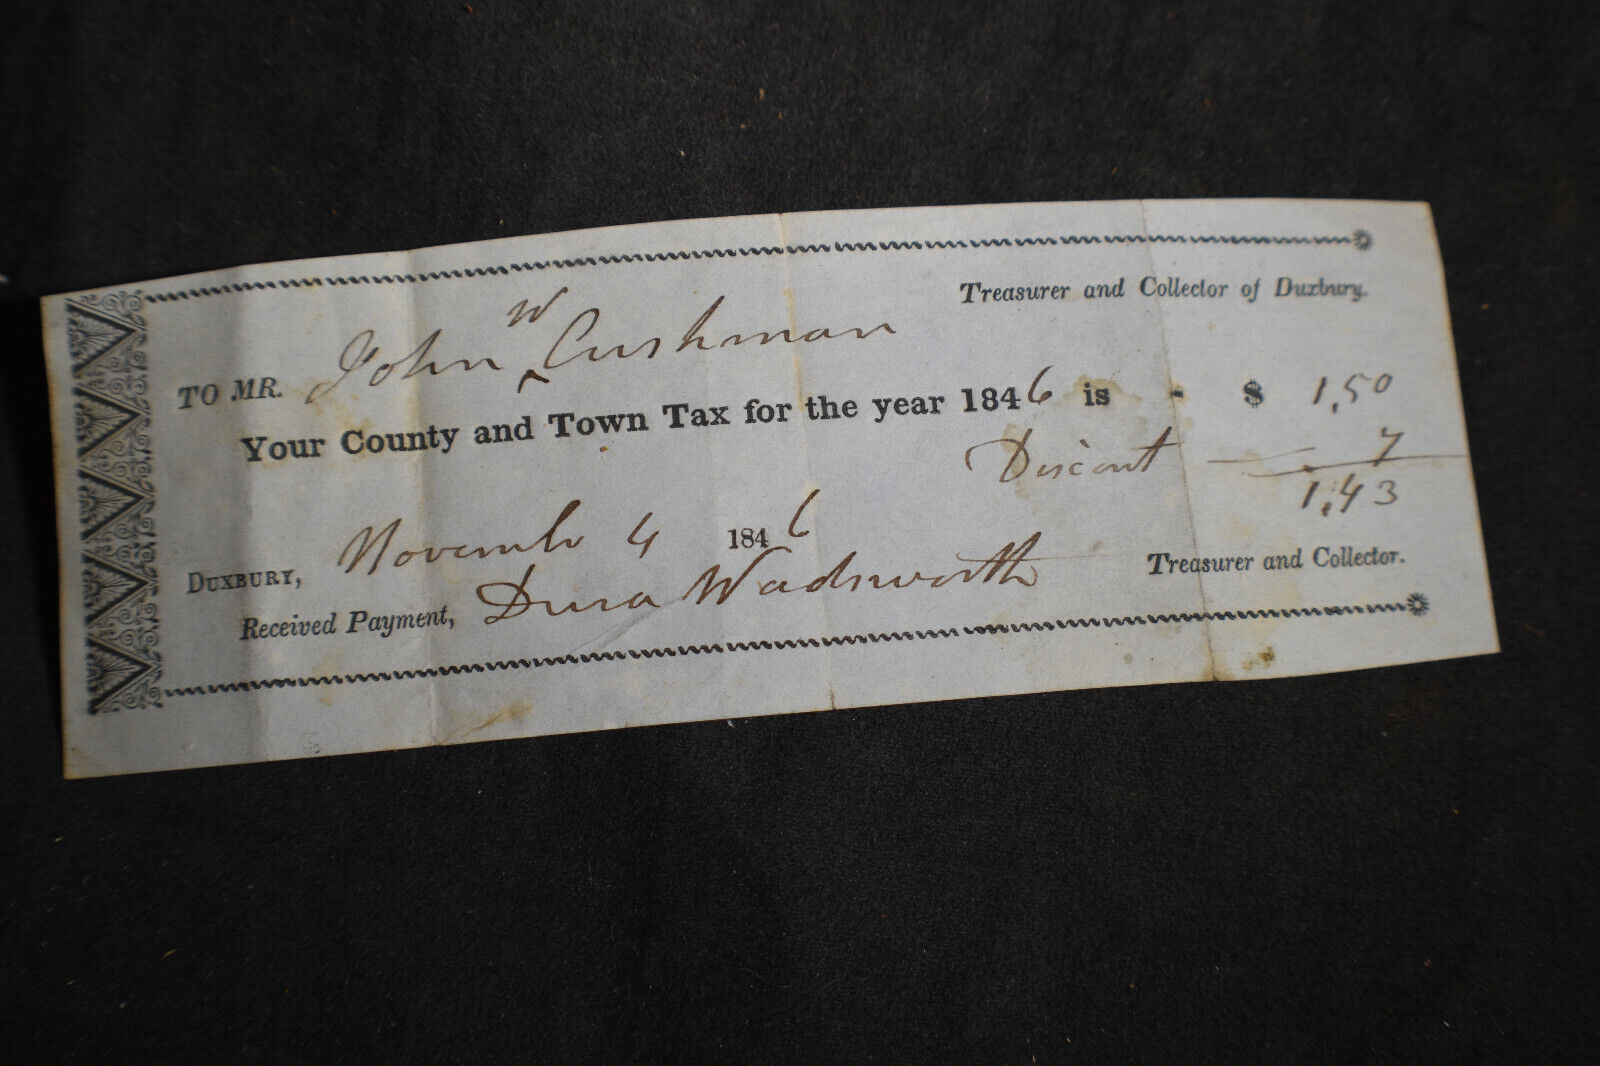 Treasurer and Collector of Duxbury.
TO MR. John W Cushman
Your County and Town Tax for the year 1846 is - $ 1,50
Discont 7
1,43
DUXBURY, November 4 1846
Received Payment, Dura Wadsworth Treasurer and Collector.